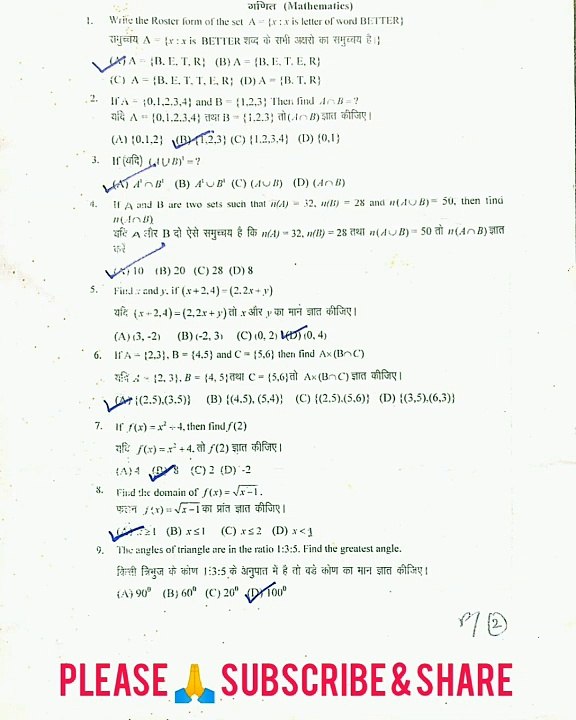 गणित (Mathematics)
1. Write the Roster form of the set A = {x : x is letter of word BETTER}
समुच्चय A = {x : x is BETTER शब्द के सभी अक्षरो का समुच्चय है।}
(A) A = {B, E, T, R} (B) A = {B, E, T, E, R}
(C) A = {B, E, T, T, E, R} (D) A = {B, T, R}
2. If A = {0,1,2,3,4} and B = {1,2,3} Then find A∩B = ?
यदि A = {0,1,2,3,4} तथा B = {1,2,3} तो (A∩B) ज्ञात कीजिए।
(A) {0,1,2} (B) {1,2,3} (C) {1,2,3,4} (D) {0,1}
3. If (यदि) (A∪B)' = ?
(A) A'∩B' (B) A'∪B' (C) (A∪B) (D) (A∩B)
4. If A and B are two sets such that n(A) = 32, n(B) = 28 and n(A∪B) = 50, then find
n(A∩B)
यदि A और B दो ऐसे समुच्चय है कि n(A) = 32, n(B) = 28 तथा n(A∪B) = 50 तो n(A∩B) ज्ञात
करें
(A) 10 (B) 20 (C) 28 (D) 8
5. Find x and y, if (x+2,4) = (2,2x+y)
यदि (x+2,4) = (2,2x+y) तो x और y का मान ज्ञात कीजिए।
(A) (3, -2) (B) (-2, 3) (C) (0, 2) (D) (0, 4)
6. If A = {2,3}, B = {4,5} and C = {5,6} then find A×(B∩C)
यदि A = {2, 3}, B = {4, 5} तथा C = {5,6} तो A×(B∩C) ज्ञात कीजिए।
(A) {(2,5),(3,5)} (B) {(4,5), (5,4)} (C) {(2,5),(5,6)} (D) {(3,5),(6,3)}
7. If f(x) = x² + 4, then find f(2)
यदि f(x) = x² + 4, तो f(2) ज्ञात कीजिए।
(A) 4 (B) 8 (C) 2 (D) -2
8. Find the domain of f(x) = √x−1.
फलन f(x) = √x−1 का प्रांत ज्ञात कीजिए।
(A) x≥1 (B) x≤1 (C) x≤2 (D) x<1
9. The angles of triangle are in the ratio 1:3:5. Find the greatest angle.
किसी त्रिभुज के कोण 1:3:5 के अनुपात में है तो बडे कोण का मान ज्ञात कीजिए।
(A) 90⁰ (B) 60⁰ (C) 20⁰ (D) 100⁰
2
PLEASE 🙏 SUBSCRIBE & SHARE